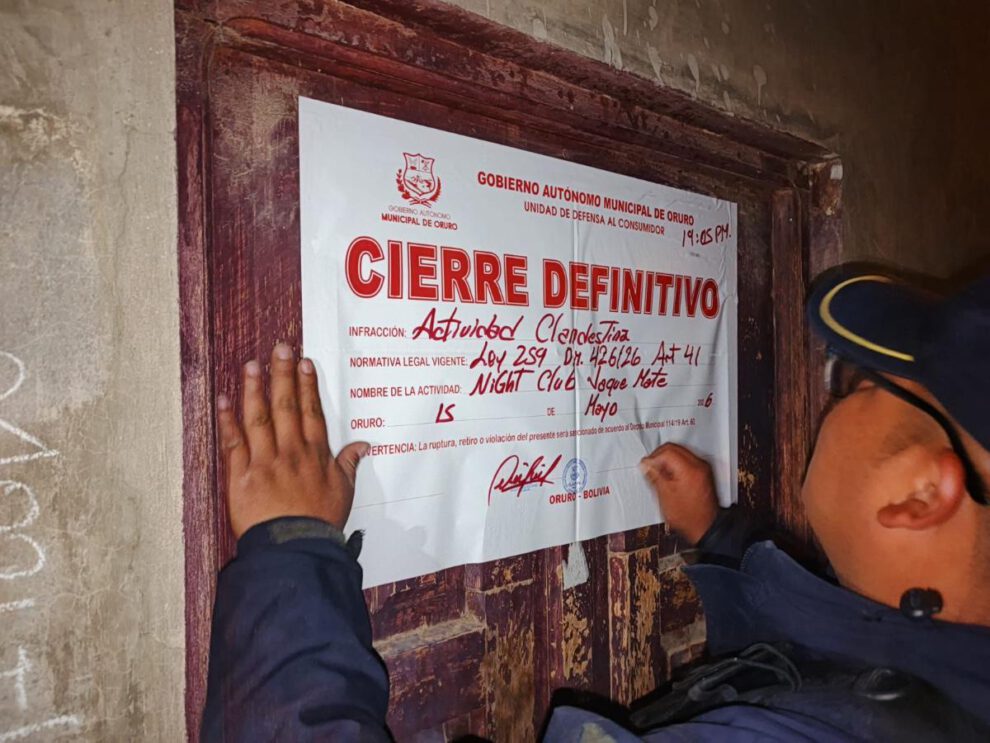 GOBIERNO AUTÓNOMO
MUNICIPAL DE ORURO
GOBIERNO AUTÓNOMO MUNICIPAL DE ORURO
UNIDAD DE DEFENSA AL CONSUMIDOR
19:05 PM.
CIERRE DEFINITIVO
INFRACCIÓN: Actividad Clandestina
NORMATIVA LEGAL VIGENTE: Ley 259 Dm. 426/26 Art 41
NOMBRE DE LA ACTIVIDAD: Night Club Jaque Mate
ORURO: 15 DE Mayo 2026
VERTENCIA: La ruptura, retiro o violación del presente será sancionado de acuerdo al Decreto Municipal 114/19 Art. 60
ORURO - BOLIVIA